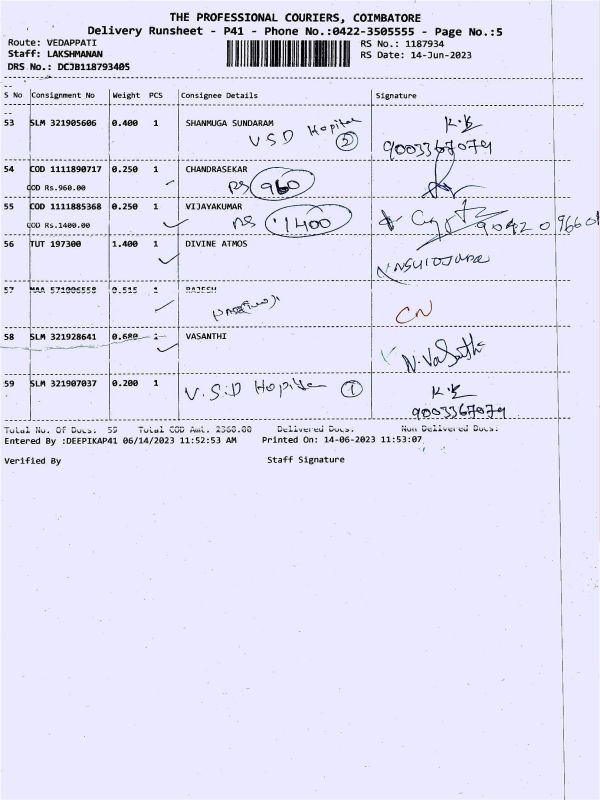 THE PROFESSIONAL COURIERS, COIMBATORE
Delivery Runsheet - P41 - Phone No.:0422-3505555 - Page No.:5
Route: VEDAPPATI RS No.: 1187934
Staff: LAKSHMANAN RS Date: 14-Jun-2023
DRS No.: DCJB118793405
S No Consignment No Weight PCS Consignee Details Signature
53 SLM 321905606 0.400 1 SHANMUGA SUNDARAM K.K
VSD Hopital 2 9003367079
54 COD 1111890717 0.250 1 CHANDRASEKAR
COD Rs.960.00 RS 960
55 COD 1111885368 0.250 1 VIJAYAKUMAR
COD Rs.1400.00 RS 1400
56 TUT 197300 1.400 1 DIVINE ATMOS
57 MAA 571006558 0.515 1 RAJESH
CN
58 SLM 321928641 0.680 1 VASANTHI
N.Vasathi
59 SLM 321907037 0.200 1 V.S.D Hopital 1 K.K
9003367079
Total No. Of Docs: 59 Total COD Amt. 2360.00 Delivered Docs: Non Delivered Docs:
Entered By :DEEPIKAP41 06/14/2023 11:52:53 AM Printed On: 14-06-2023 11:53:07
Verified By Staff Signature